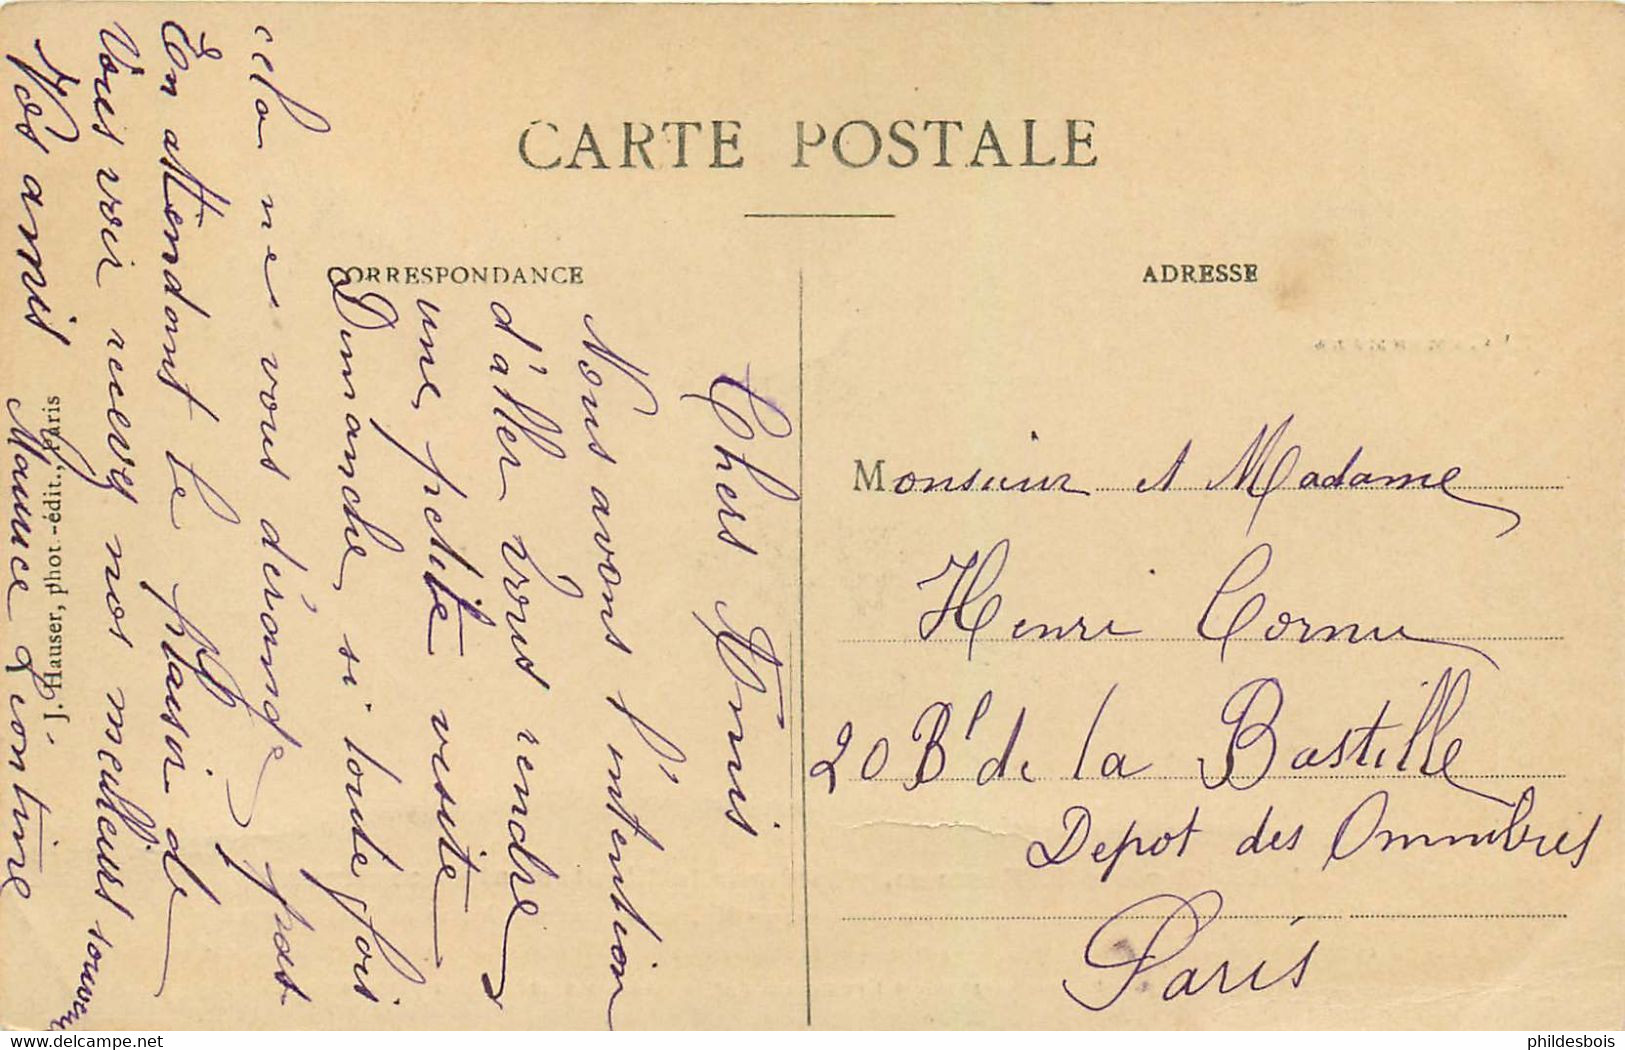 CARTE POSTALE
CORRESPONDANCE
ADRESSE
Chers Amis
Nous avons l'intention
d'aller vous rendre
une petite visite
Dimanche, si toute fois
cela ne vous dérange pas
En attendant le plaisir de
Vous voir recevez nos meilleurs souvenirs
Vos amis
Maurice Léontine
J. Hauser, phot.-édit., Paris
Monsieur et Madame
Henri Cornu
20 Bd de la Bastille
Depot des Omnibus
Paris
phildesbois